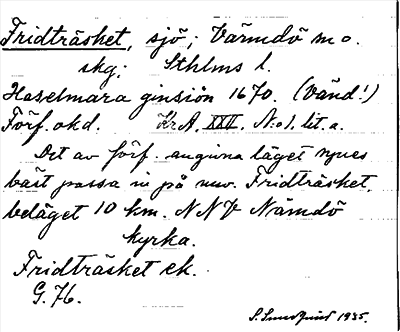 Fridträsket, sjö; Värmdö m o.
skg; Sthlms l.
Haselmara ginsiön 1670. (Vänd!)
Förf. okd. Kr.A. XXII. N:o 1. lit. a.
Det av förf. angivna läget synes
bäst passa in på nuv. Fridträsket,
beläget 10 km. NNV Nämdö
kyrka.
Fridträsket ek.
G. 76.
S. Sundquist 1935.